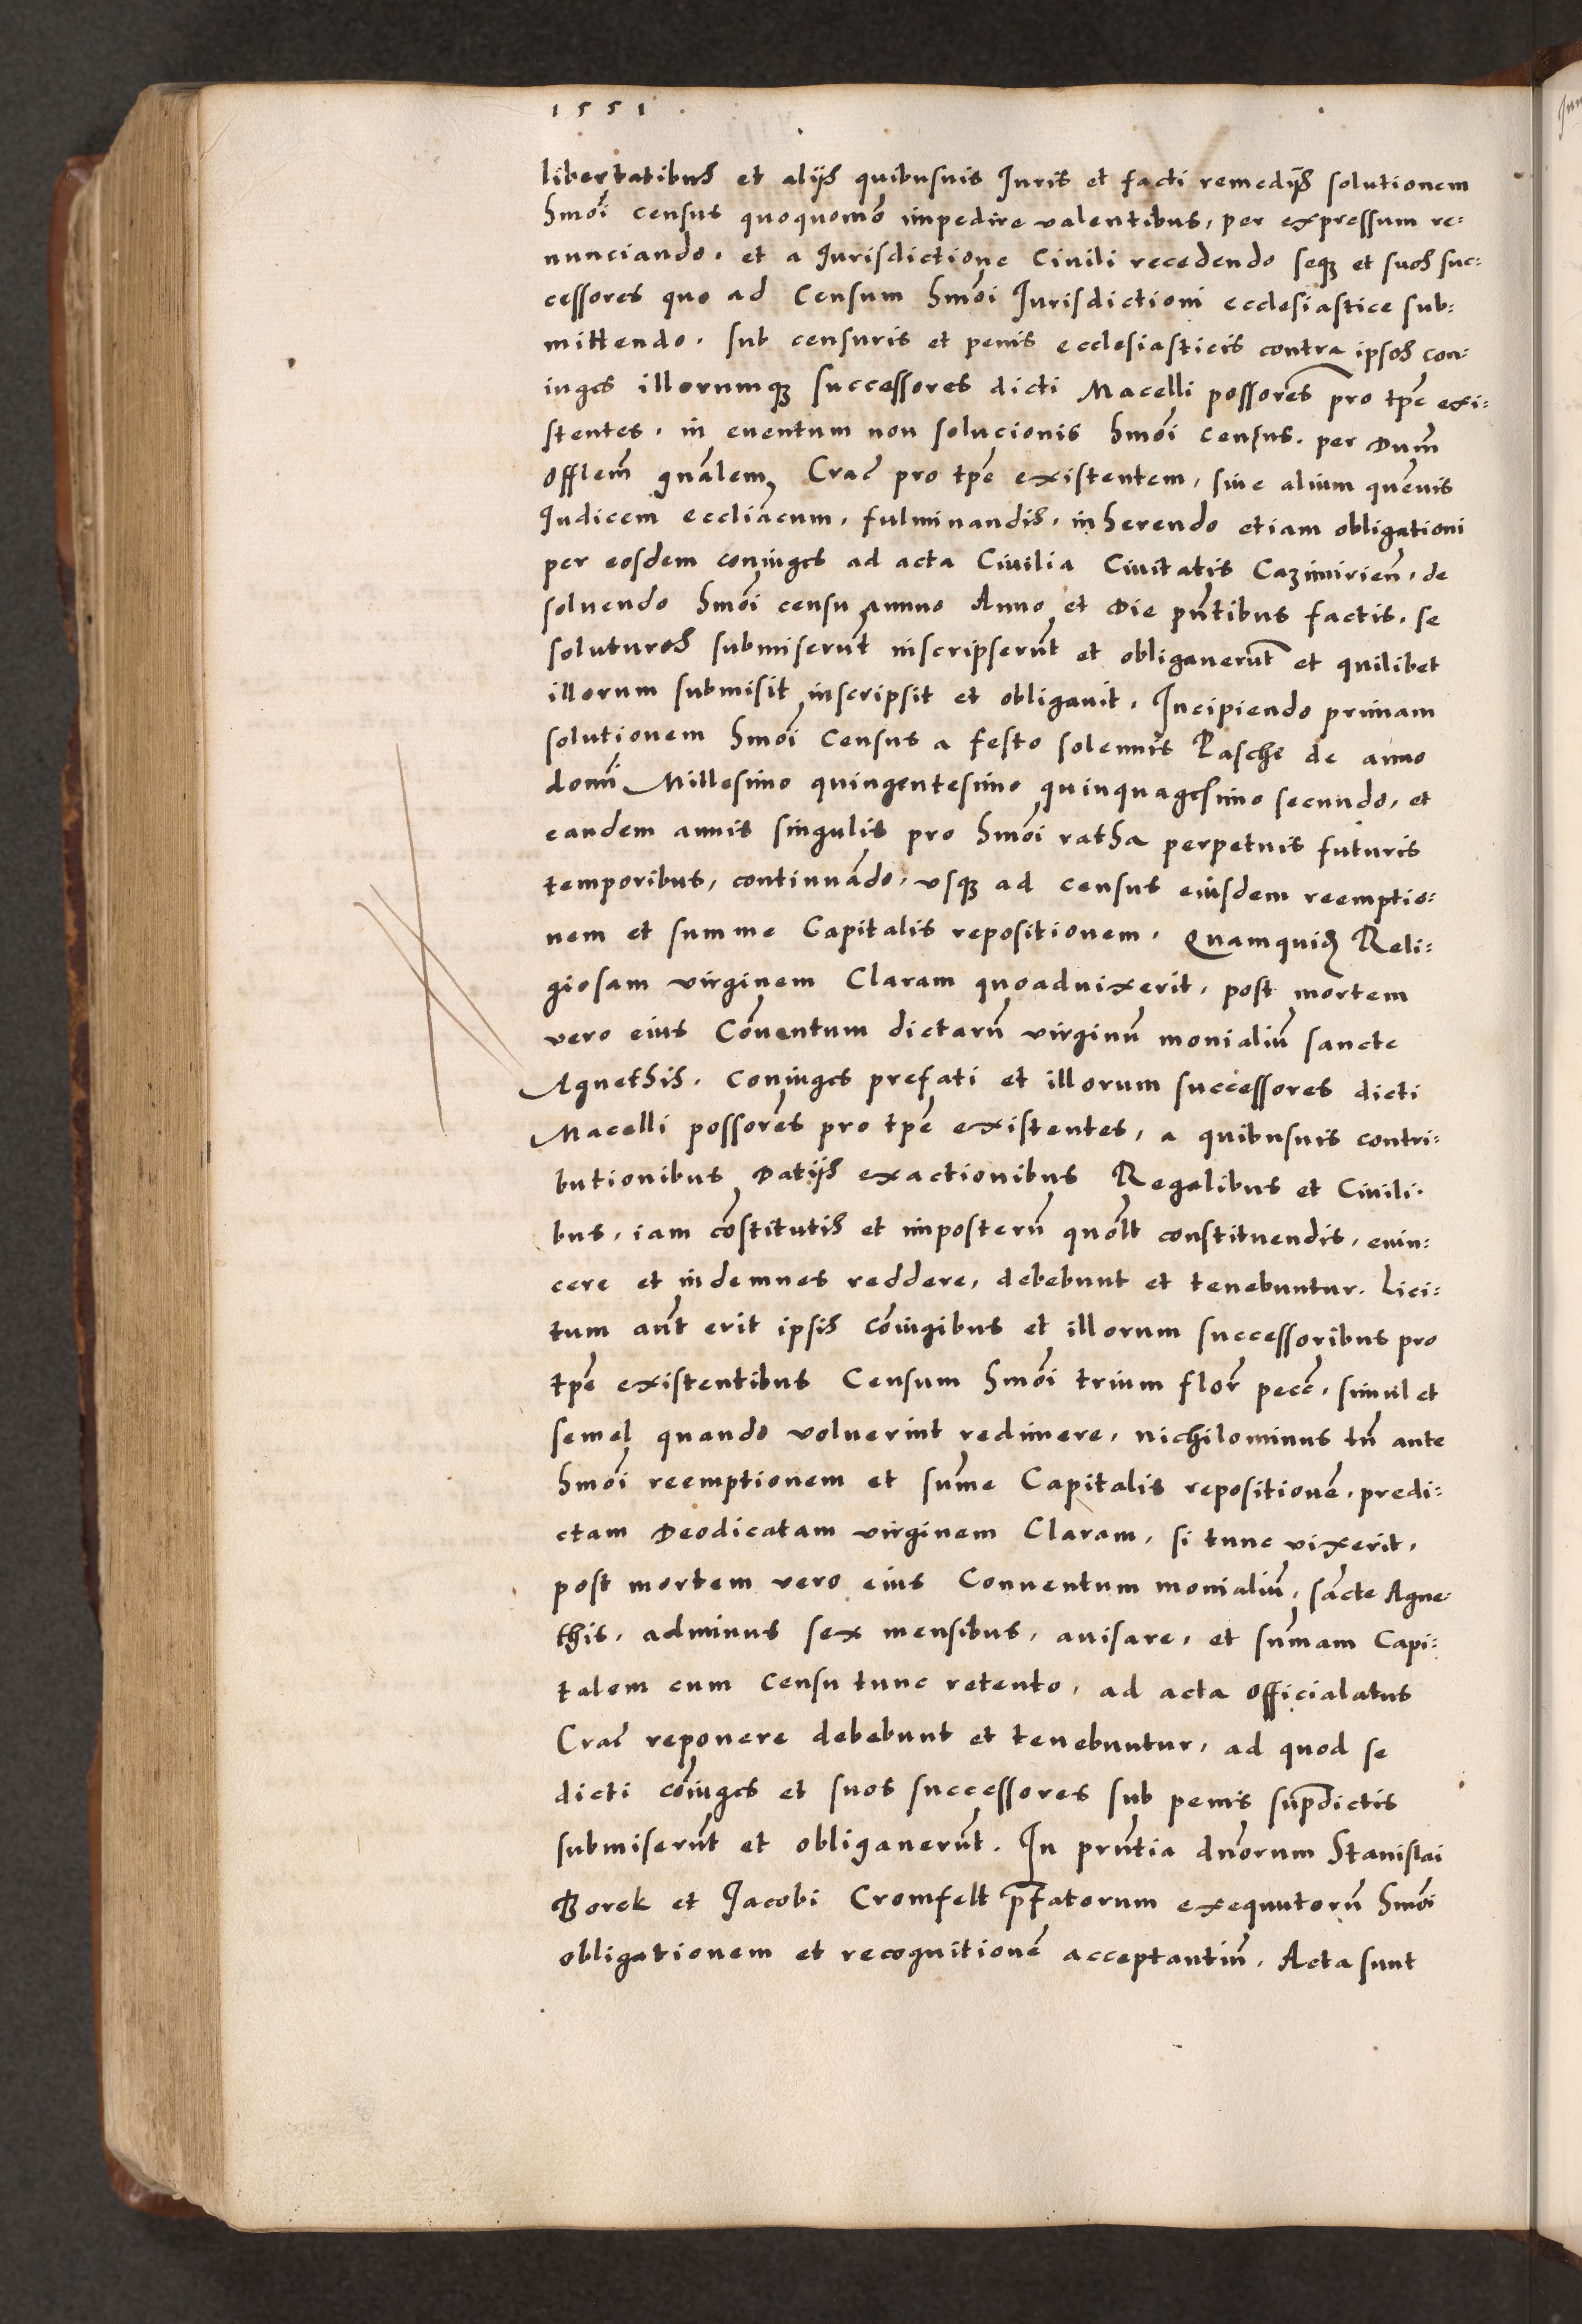 1551
libertatibus et alijs quibusuis Iuris et facti remedijs solutionem
hmōi census quoquomō impedire valentibus, per expressum re=
nunciando, et a Iurisdictione Ciuili recedendo seqȝ et suos suc=
cessores quo ad Censum hmōi Iurisdictioni ecclesiastice sub=
mittendo, sub censuris et penis ecclesiasticis contra ipsos con=
iuges illorumqȝ successores dicti Macelli possorēs pro tpē exi=
stentes, in euentum non solucionis hmōi census, per Dnūm
Offlēm gnālem Crac̄ pro tpē existentem, siue alium quēuis
Iudicem eccliacum, fulminandis, inherendo etiam obligationi
per eosdem coniuges ad acta Ciuilia Ciuitatis Cazimirien̄, de
soluendo hmōi censu annuo Anno et Die pn̄tibus factis, se
soluturos submiserūt inscripserūt et obligauerūt et quilibet
illorum submisit inscripsit et obligauit, Incipiendo primam
solutionem hmōi Census a festo solennis Pasche de anno
domī Millesimo quingentesimo quinquagesimo secundo, et
eandem annis singulis pro hmōi ratha perpetuis futuris
temporibus, continuādo, vsqȝ ad census eiusdem reemptio=
nem et summe Capitalis repositionem. Quamquidȝ Reli=
giosam virginem Claram quoaduixerit, post mortem
vero eius Cōuentum dictarū virginū monialiū sancte
Agnethis, Coniuges prefati et illorum successores dicti
Macelli possorēs pro tpē existentes, a quibusuis contri=
butionibus Datijs exactionibus Regalibus et Ciuili=
bus, iam cōstitutis et imposterū quōlt constituendis, euin=
cere et indemnes reddere, debebunt et tenebuntur. Lici=
tum aūt erit ipsis cōiugibus et illorum successoribus pro
tpē existentibus Censum hmōi trium flor̄ pecc̄, simul et
semel quando voluerint redimere, nichilominus tn̄ ante
hmōi reemptionem et sūme Capitalis repositionē, predi=
ctam Deodicatam virginem Claram, si tunc vixerit,
post mortem vero eius Conuentum monialiū, sācte Agne=
this, adminus sex mensibus, auisare, et sūmam Capi=
talem cum Censu tunc retento, ad acta officialatus
Crac̄ reponere debebunt et tenebuntur, ad quod se
dicti cōiuges et suos successores sub penis sup̄dictis
submiserūt et obligauerūt. In prn̄tia dnōrum Stanislai
Borek et Iacobi Cromfelt p̄fatorum exequutorū hmōi
obligationem et recognitionē acceptantiū, Acta sunt